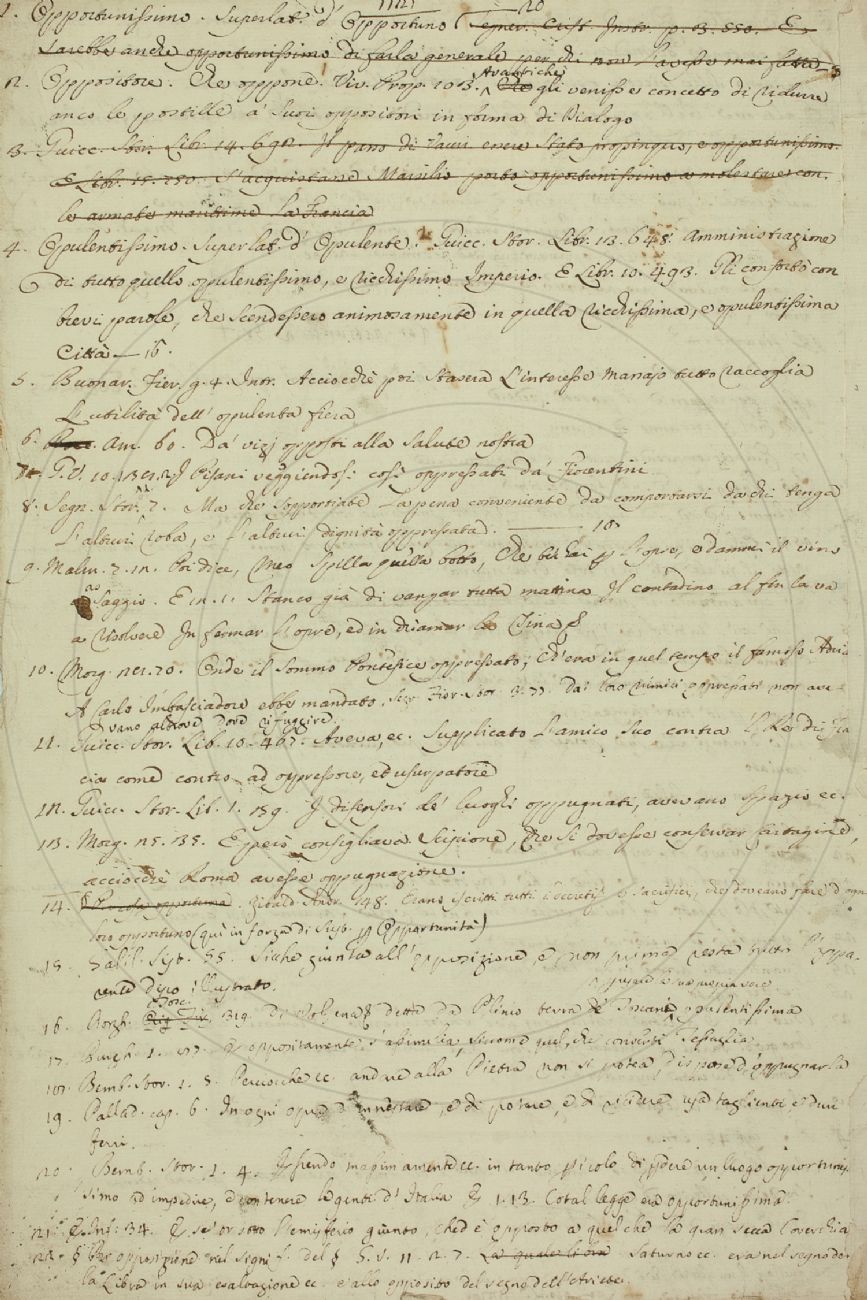 1727
20
1. Opportunissimo. Superlat. d' Opportuno Segner. Crist. Instr. p. 3. 550. E
Sarebbe anche opportunissimo di farla generale per chi non l'avesse mai fatta
2. Oppositore. Che oppone. Viv. Prop. 103. Avanti che gli venisse concetto di ridurre
anco le postille a' suoi oppositori in forma di Dialogo
3. Guicc. Stor. Libr. 14. 692. Il passo di era stato propinquo, e opportunissimo.
E Libr. 15. 750. S'acquistare Marsilia porto opportunissimo a molestare con
le armate marittime la Francia
4. Opulentissimo. Superlat. d' Opulente. Guicc. Stor. Libr. 13. 648. Amministrazione
di tutto quello opulentissimo, e ricchissimo Imperio. E Libr. 10. 493. Gli confortò con
brevi parole, che scendessero animosamente in quella ricchissima, e opulentissima
Città — 16.
5. Buonar. Fier. g. 4. Intr. Acciocchè poi stasera L'interesse mariajo tutto raccoglia
L'utilità dell' opulenta fiera
6. Am. 60. Da' vizj opposti alla salute nostra
7. G. V. 10. I Pisani veggiendosi così oppressati da' Fiorentini
8. Segn. Stor. 7. Ma che sopportiate la pena conveniente da comportarsi da chi tenga
L'altrui roba, e l'altrui dignità oppressata. — 18
9. Malm. 7. 12. Poi dice, Meo spilla quella botte, Che l'opre, e dammi il vino
a Saggio. E 12. 1. Stanco già di vangar tutta mattina Il contadino al fin la va
a risolvere In fermar l'opre, ed in chiamar la Tina
10. Morg. 20. Onde il sommo Pontefice oppressato; Ch'era in quel tempo il famoso
A Carlo Imbasciadore ebbe mandato. Segr. Fior. Stor. 3. 77. Da' loro nimici oppressati non ave-
vano altrove dove rifuggire.
11. Guicc. Stor. Lib. 10. 467. Aveva, ec. supplicato l'amico suo contra il Re di Fra
cia come contro ad oppressore, ed usurpatore
12. Guicc. Stor. Lib. 1. 159. I difensori de' luoghi oppugnati, avevano spazio ec.
13. Morg. 25. 135. E però consigliava Scipione, Che si dovesse conservar Cartagine,
acciocchè Roma avesse oppugnazione.
14. Zibald. Andr. 148. Erano scritti tutti e sacrifici, che dovevano fare d'ogni
loro opportuno (qui in forza di Sust. p Opportunità)
15. Salil. Sett. 55. Sicchè giunta all' opposizione, e non prima resta tutto l'appa-
rente disco illustrato.
16. Borgh. 319. detta da Plinio terra di Toscana opulentissima
17. Burgh. 1. oppositamente s'assimilia, siccome quel, che convertì Tessaglia.
18. Bemb. Stor. 1. 8. Perciocchè ec. andare alla Pietra non si potea, nè poterà oppugnarsi
19. Pallad. cap. 6. In ogni opera d'innestare, e di potare, e di ricidere usa taglienti e duri
ferri.
20. Bemb. Stor. 1. 4. Essendo massimamente ec. in tanto picolo di pdere un luogo opportunis-
simo ad impedire, e contenere le genti d' Italia E 1. 13. Cotal legge era opportunissima.
21. Inf. 34. E se' or sotto l'emisperio giunto, Ched è opposto a quel che la gran secca Coverchia
22. § Per opposizione nel signif. del § G. V. 11. 2. 7. La quale libra Saturno ec. era nel segno de
la Libra in sua esaltazione ec. e allo opposito del segno dell'Ariete.